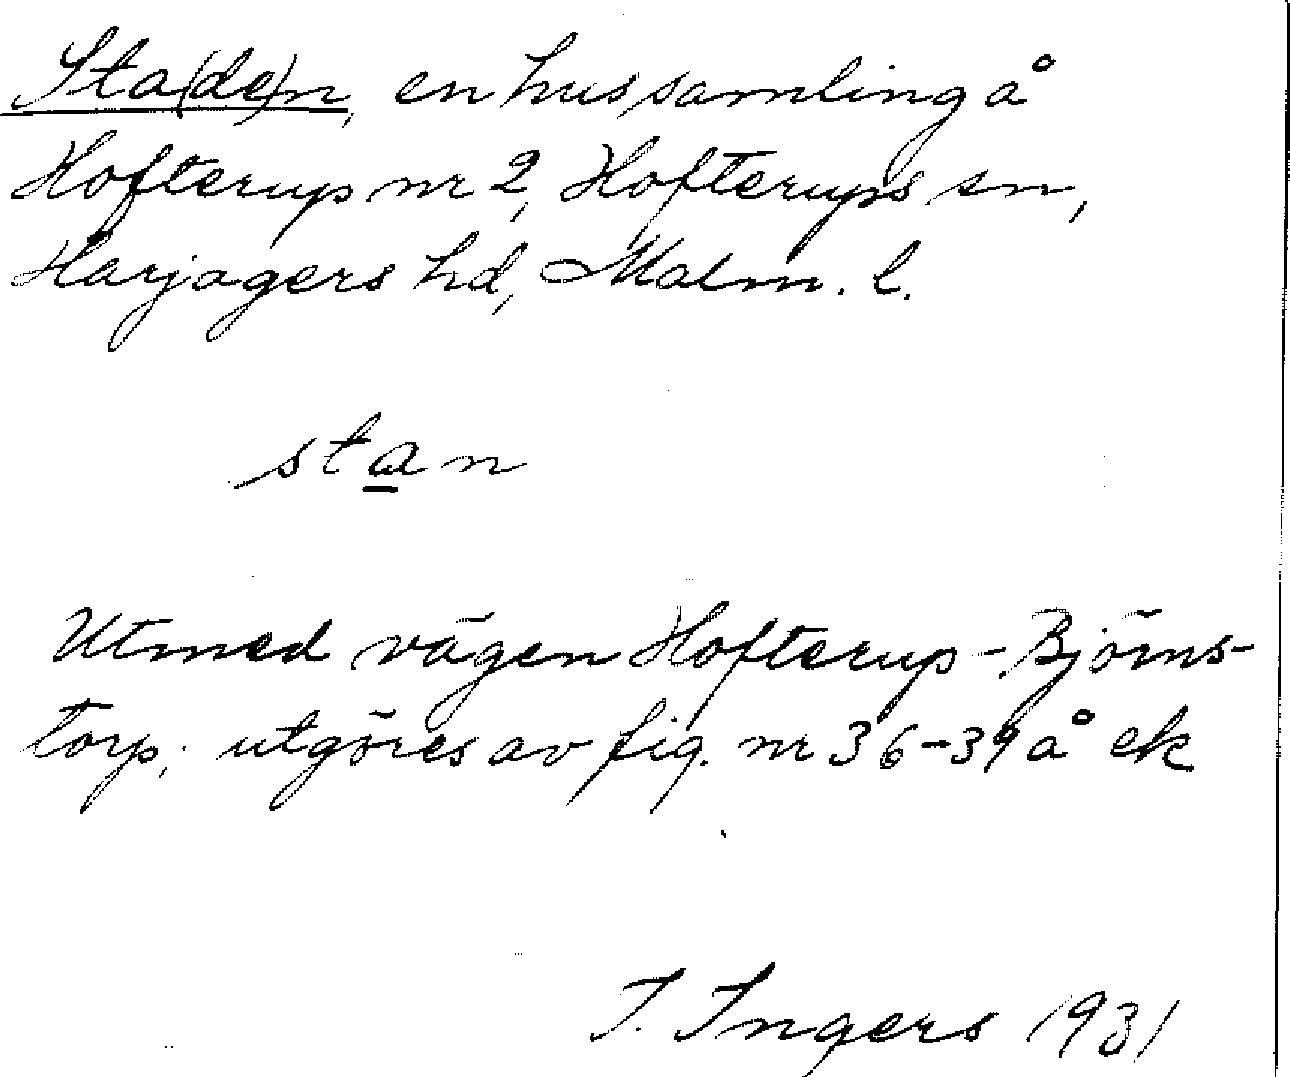 Sta(de)n, en hussamling å
Hofterup nr 2, Hofterups sn,
Harjagers hd, Malm. l.
stan
Utmed vägen Hofterup-Björns-
torp; utgöres av fig. nr 36-39 å ek
I. Ingers 1931